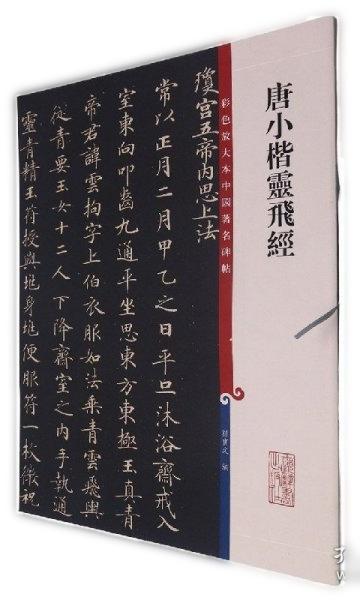 唐小楷靈飛經
彩色放大本中國著名碑帖
孫寶文 編
瓊宫五帝内思上法
常以正月二月甲乙之日平旦沐浴齋戒入
室東向叩齒九通平坐思東方東極玉真青
帝君諱雲拘字上伯衣服如法乘青雲飛輿
從青要玉女十二人下降齋室之内手執通
靈青精玉符授與兆身兆便服符一枚微祝